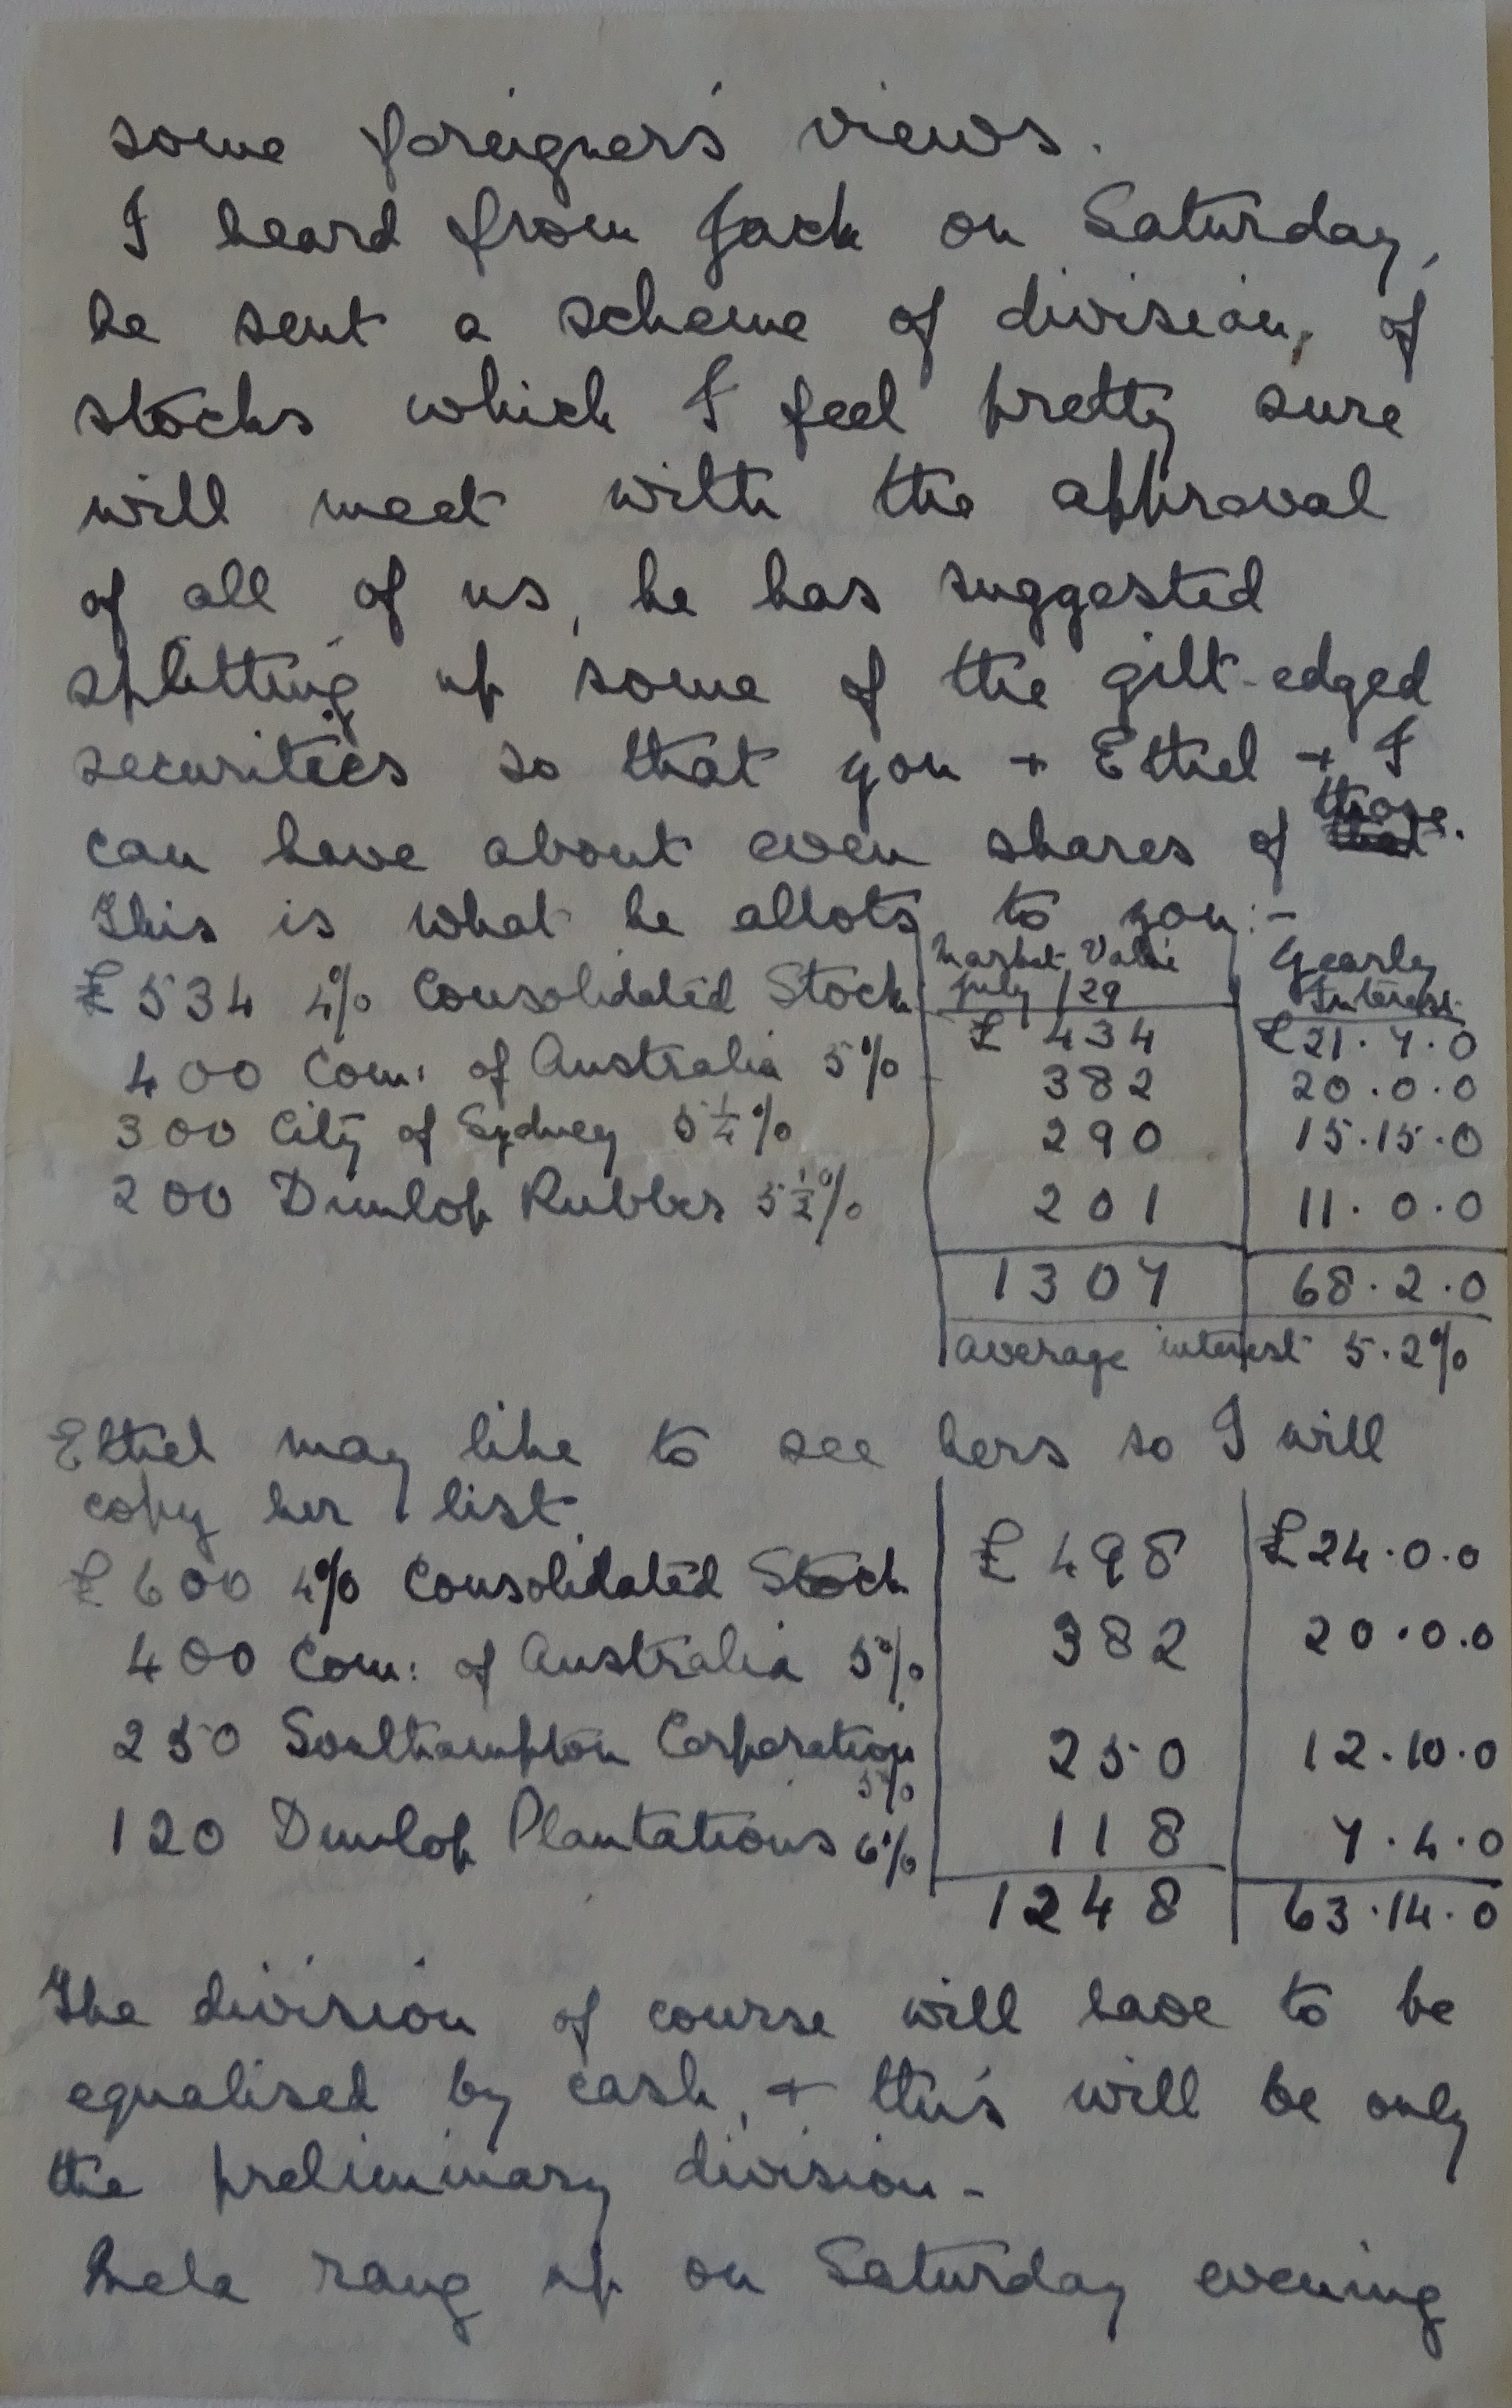 some foreigners' views.
I heard from Jack on Saturday,
he sent a scheme of division, of
stocks which I feel pretty sure
will meet with the approval
of all of us, he has suggested
splitting up some of the gilt-edged
securities so that you + Ethel + I
can have about even shares of those.
This is what he allots to you:-
Market Value July /29 Yearly Interest
£534 4% Consolidated Stock £ 434 £21.7.0
400 Com: of Australia 5% 382 20.0.0
300 City of Sydney 5¼% 290 15.15.0
200 Dunlop Rubber 5½% 201 11.0.0
1307 68.2.0
average interest 5.2%
Ethel may like to see hers so I will
copy her list.
£600 4% Consolidated Stock £ 498 £24.0.0
400 Com: of Australia 5% 382 20.0.0
250 Southampton Corporation 5% 250 12.10.0
120 Dunlop Plantations 6% 118 7.4.0
1248 63.14.0
The division of course will have to be
equalised by cash, + this will be only
the preliminary division -
rang up on Saturday evening